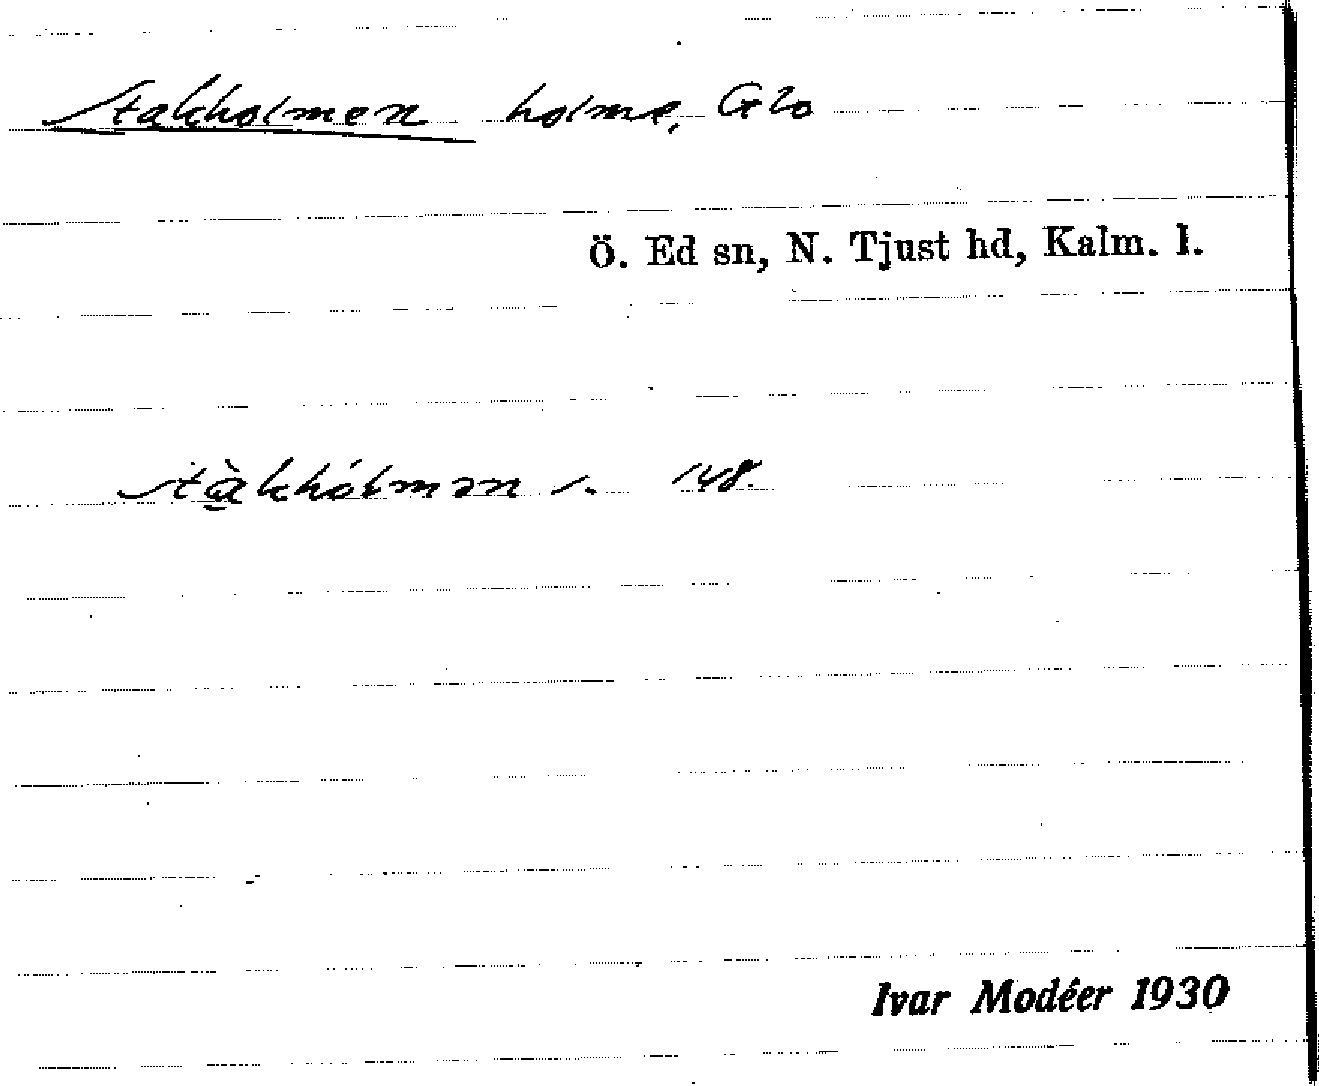 Stakholmen holme, G20
Ö. Ed sn, N. Tjust hd, Kalm. l.
stàkhólmən 148.
Ivar Modéer 1930